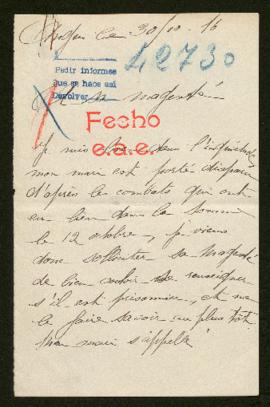 le 30/10 16
42730
Pedir informes
que se haga así
Devolver
Sa Majesté
Fecho
e.a.e.
Je suis dans l'inquiétude
mon mari est porté disparu
d'après les combats qui ont
eu lieu dans la Somme
le 12 octobre, je viens
donc solliciter sa Majesté
de bien vouloir se renseigner
s'il est prisonnier, et me
le faire savoir au plus tôt
Mon mari s'appelle